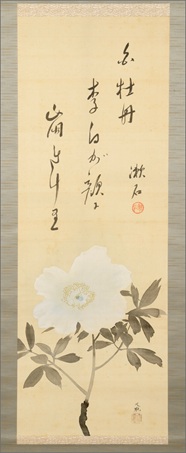 白牡丹
李白が顔に
崩れけり
漱石